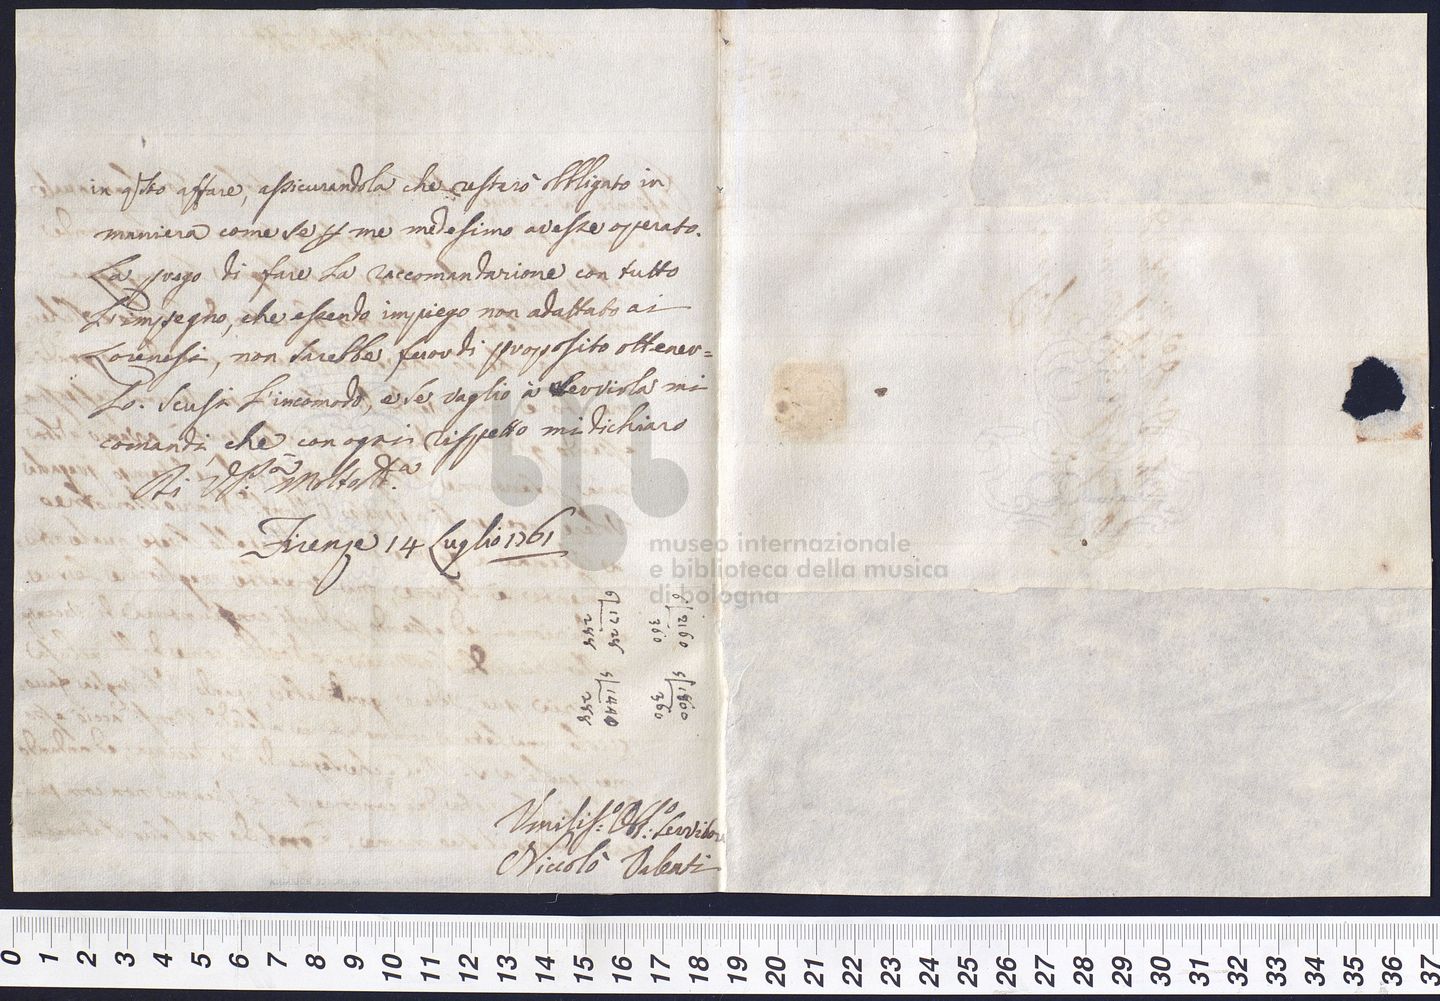 in qsto affare, assicurandola che resterò obbligato in
maniera come se p me medesimo avesse operato.
La prego di fare la raccomandazione con tutto
l'impegno, che essendo impiego non adattato ai
Lorenesi, non sarebbe fuor di proposito ottener=
lo. Scusi l'incomodo, e se vaglio à servirla mi
comandi, che con ogni rispetto mi dichiaro
Di VS. Molto
Firenze 14 Luglio 1761
museo internazionale
e biblioteca della musica
di bologna
6 | 1728
288
6 | 2160
360
5 | 1440
288
5 | 1800
360
Umilis:o Obb:o Servitore
Niccolò Valenti
0 1 2 3 4 5 6 7 8 9 10 11 12 13 14 15 16 17 18 19 20 21 22 23 24 25 26 27 28 29 30 31 32 33 34 35 36 37